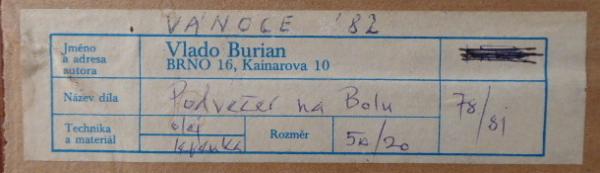 VÁNOCE '82
Jméno a adresa autora
Vlado Burian
BRNO 16, Kainarova 10
Název díla
Podvečer na Bolu
78/81
Technika a materiál
olej
Rozměr
50/20